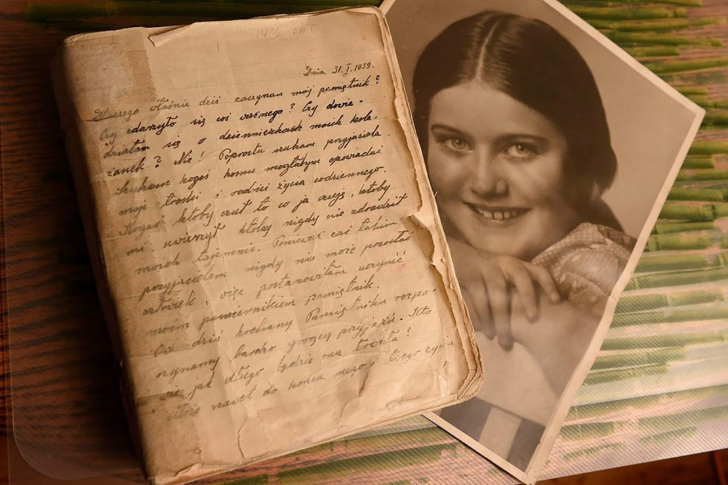 Dnia 31.I.1939.
Dlaczego właśnie dziś zaczynam mój pamiętnik?
Czy zdarzyło się coś ważnego? Czy dowie-
działam się o dzienniczkach moich kole-
żanek? Nie! Poprostu szukam przyjaciela.
Szukam kogoś komu mogłabym opowiadać
moje troski i radości życia codziennego.
Kogoś ktoby czuł to co ja czuję, ktoby
mi uwierzył ktoby nigdy nie zdradził
moich tajemnic. Ponieważ takim
przyjacielem nigdy nie może pozostać
człowiek, więc postanowiłam uczynić
moim powiernikiem pamiętnik.
Od dziś kochany Pamiętniku rozpo-
czynamy bardzo przyjaźń. Kto
wie jak długo będzie ona trwała?
Może nawet do końca mego życia